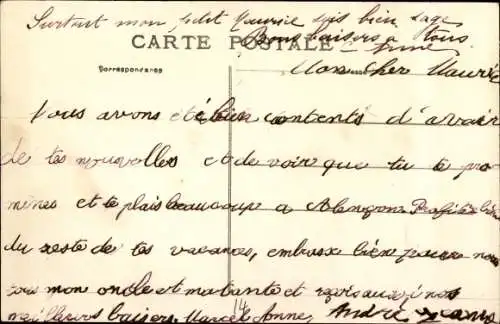 Surtout mon petit Maurice sois bien sage
Bons baisers a tous
CARTE POSTALE
Correspondance
Mon cher Maurice
Nous avons été bien contents d'avoir
de tes nouvelles et de voir que tu te pro
mènes et te plais beaucoup a Alençon Profite bien
du reste de tes vacances, embrasse bien pour nous
tous mon oncle et ma tante et reçois aussi nos
meilleurs baisers. Marcel Anne, André
14